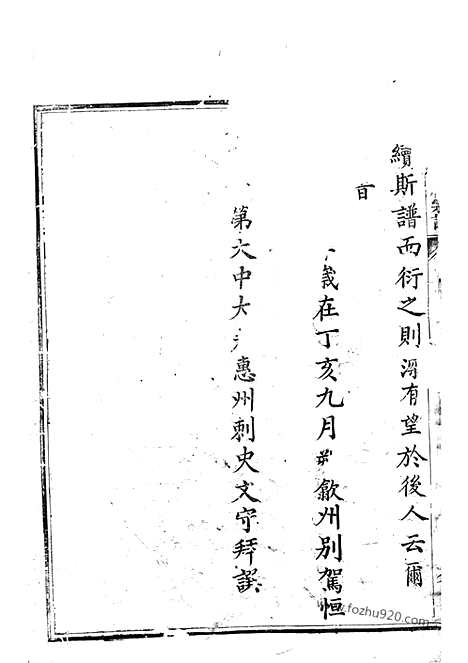 續斯譜而衍之則深有望於後人云爾
旹
歲在丁亥九月歙州別駕恒
第六中大夫惠州刺史文守拜譔
www.fozhu920.com